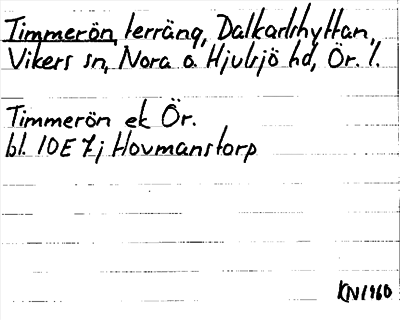 Timmerön, terräng, Dalkarlshyttan,
Vikers sn, Nora o Hjulsjö hd, Ör. l.
Timmerön ek Ör.
bl. 10E 7j Hovmanstorp
KN1960